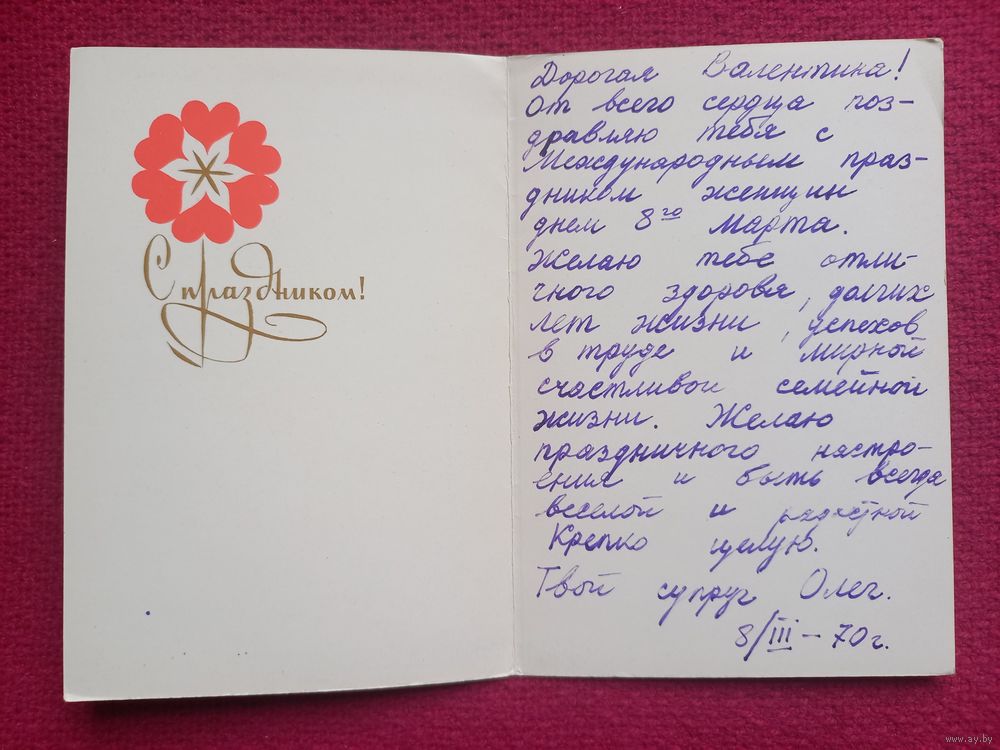 С праздником!
Дорогая Валентина!
От всего сердца поз-
дравляю тебя с
Международным праз-
дником женщин
днем 8го Марта.
Желаю тебе отли-
чного здоровя, долгих
лет жизни, успехов
в труде и мирной
счастливой семейной
жизни. Желаю
праздничного настро-
ения и быть всегда
веселой и радостной
Крепко целую.
Твой супруг Олег.
8/III – 70 г.
www.ay.by